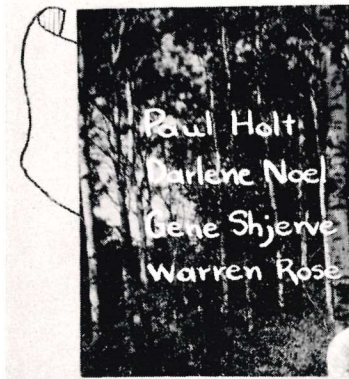 Paul Holt
Darlene Noel
Gene Shjerve
Warren Rose